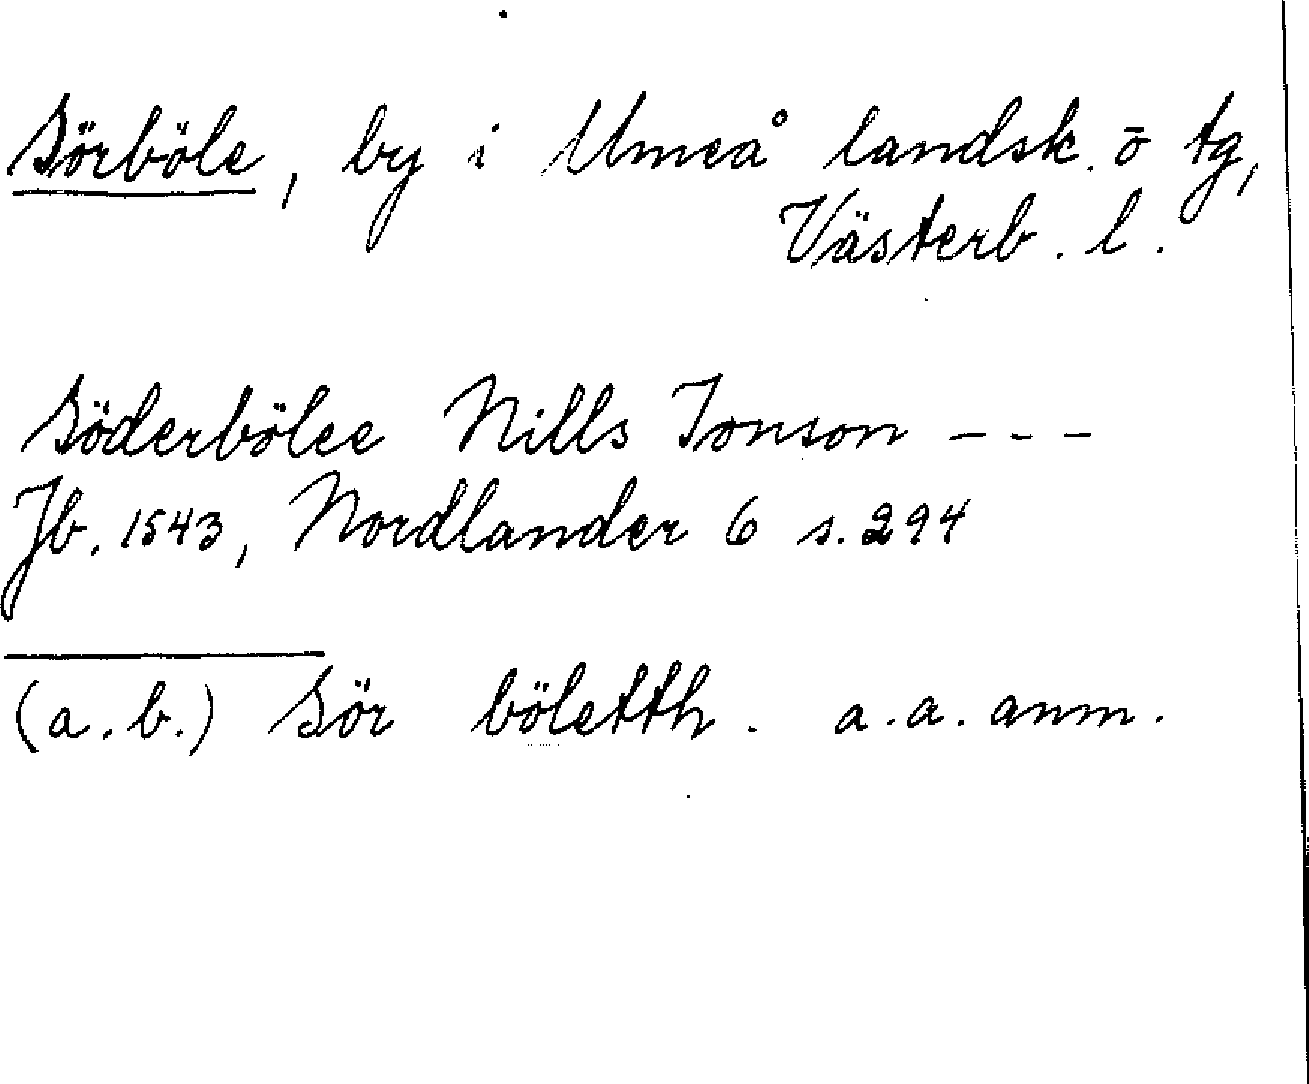 Sörböle, by i Umeå landsk. o tg,
Västerb. l.
Söderbölee Nills Jonson ---
Jb. 1543, Nordlander 6 s. 294
(a. b.) Sör böletth. a. a. anm.